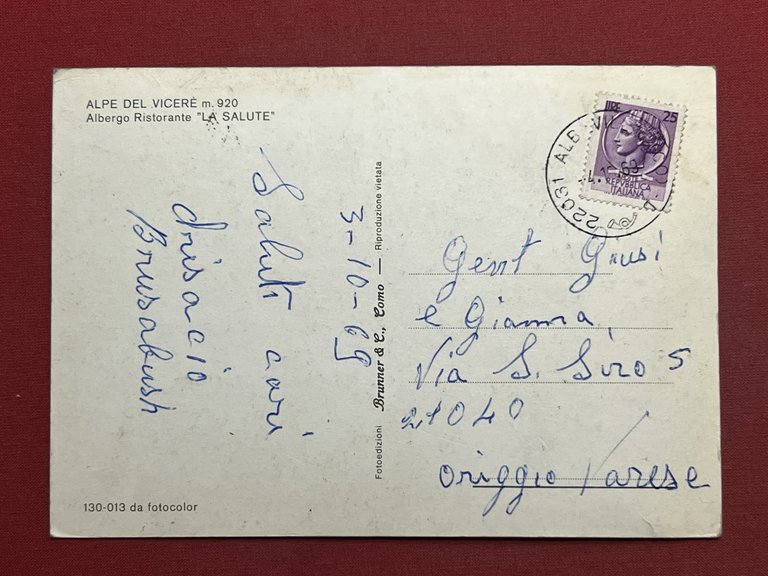 ALPE DEL VICERÈ m. 920
Albergo Ristorante "LA SALUTE"
Saluti cari
3-10-69
130-013 da fotocolor
Fotoedizioni Brunner & C., Como — Riproduzione vietata
LIRE 25
REPUBBLICA
ITALIANA
22031 ALBAVILLA
Gent Giusi
e Gianna
Via S. Siro 5
21040
Origgio Varese